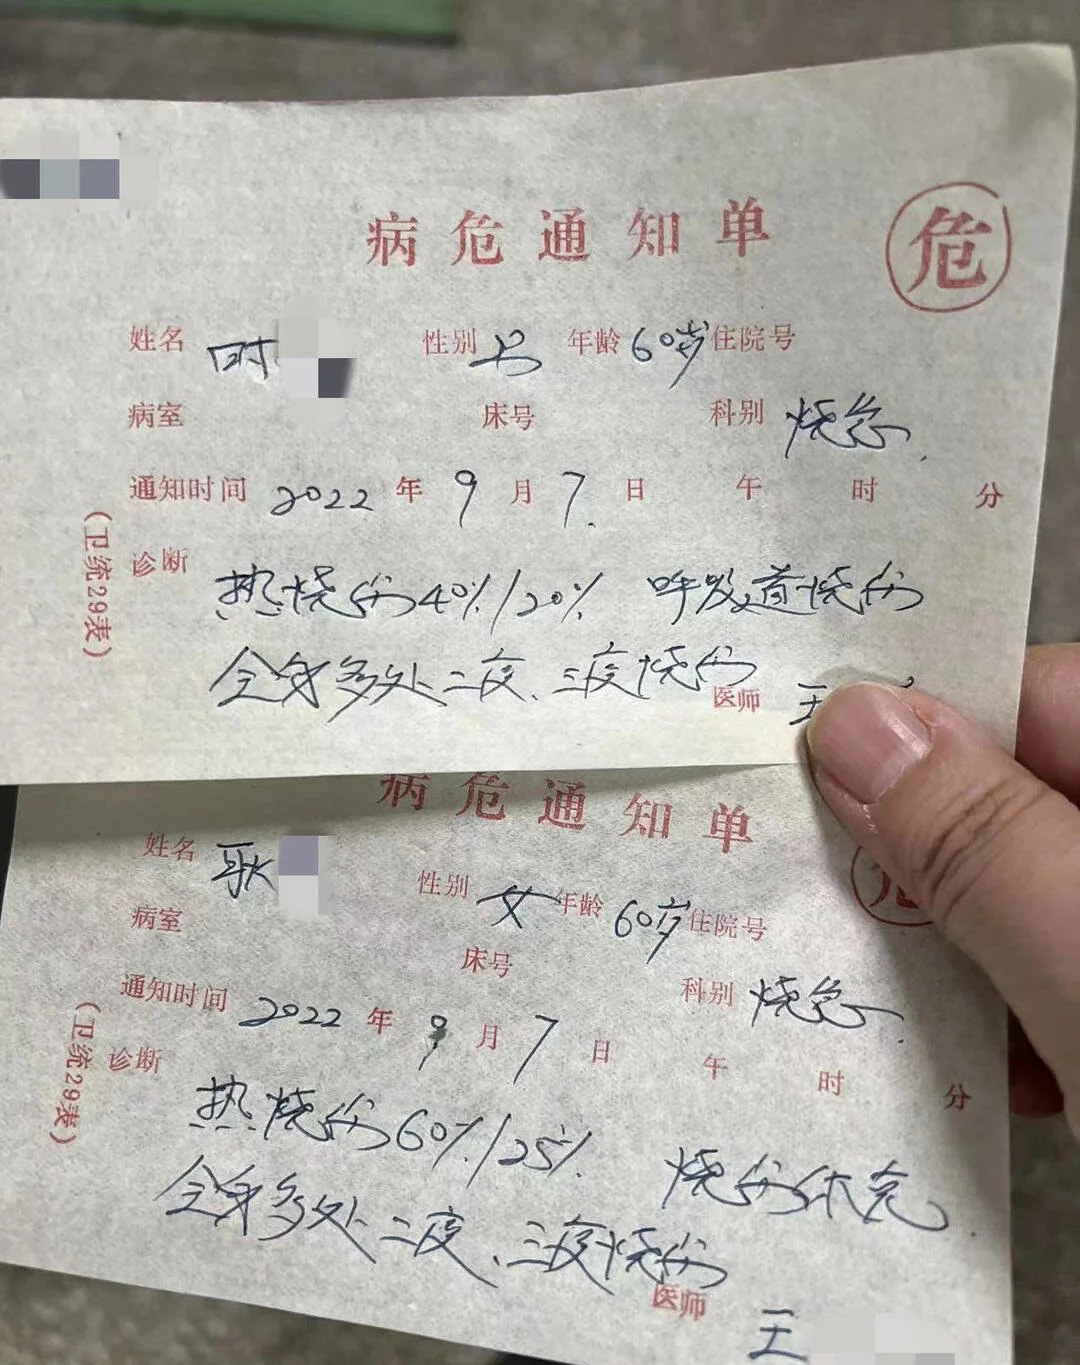 病危通知单 危
姓名 时 性别 男 年龄 60岁 住院号
病室 床号 科别 烧急
通知时间 2022 年 9 月 7 日 午 时 分
诊断 热烧伤40%/20% 呼吸道烧伤
全身多处二度、三度烧伤
医师 王
(卫统29表)
病危通知单 危
姓名 耿 性别 女 年龄 60岁 住院号
病室 床号 科别 烧急
通知时间 2022 年 9 月 7 日 午 时 分
诊断 热烧伤60%/25% 烧伤休克
全身多处二度、三度烧伤
医师 王
(卫统29表)